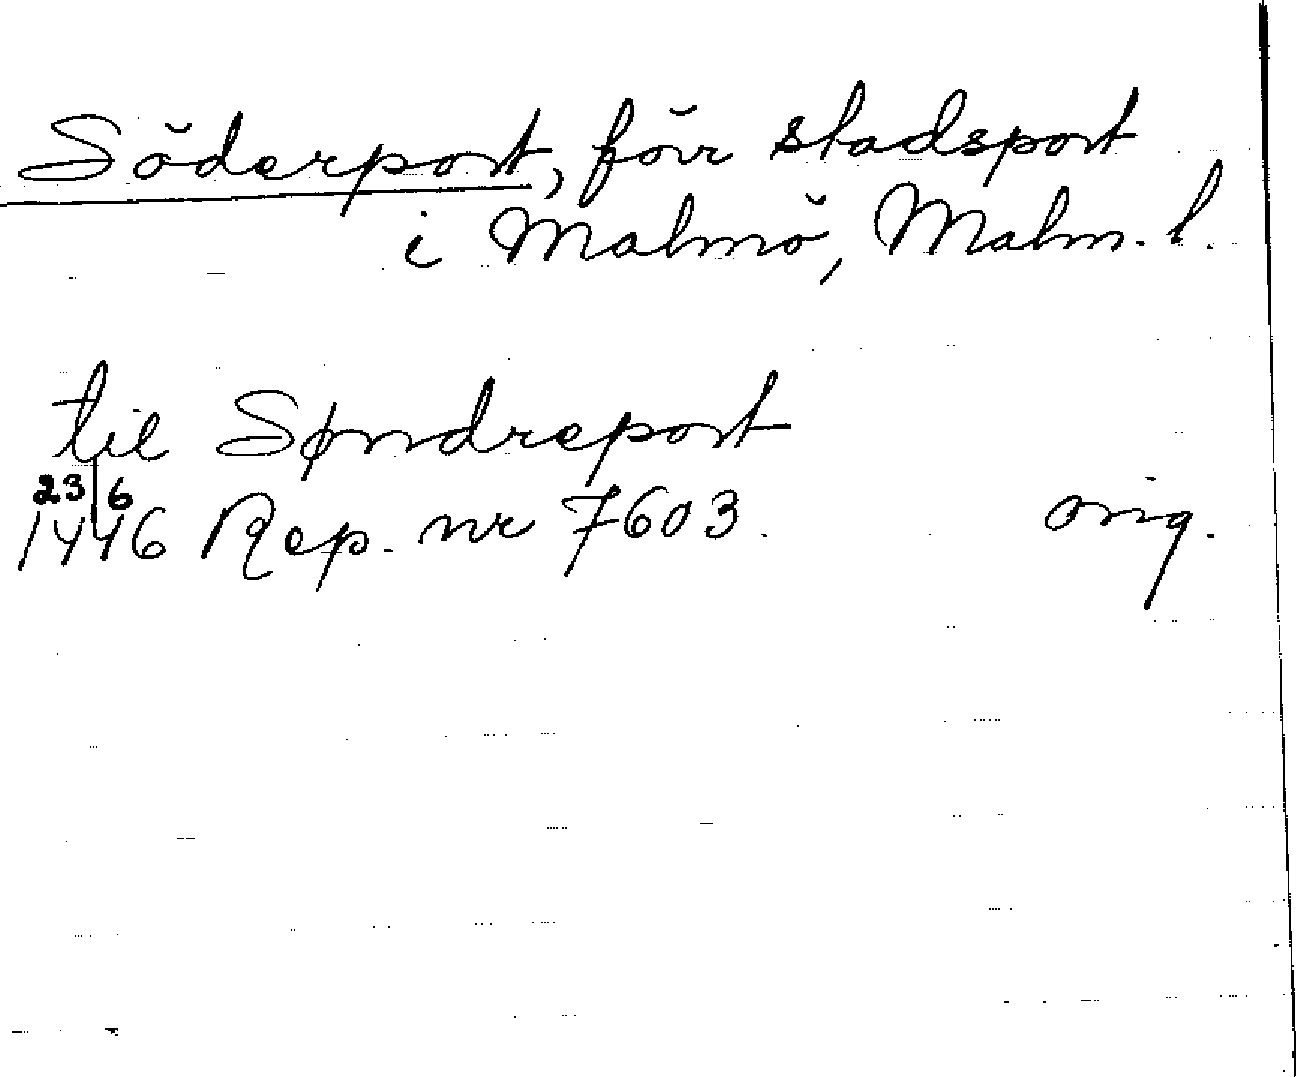 Söderport, förr stadsport
i Malmö, Malm. l.
til Søndreport
23/6
1446 Rep. nr 7603. orig.